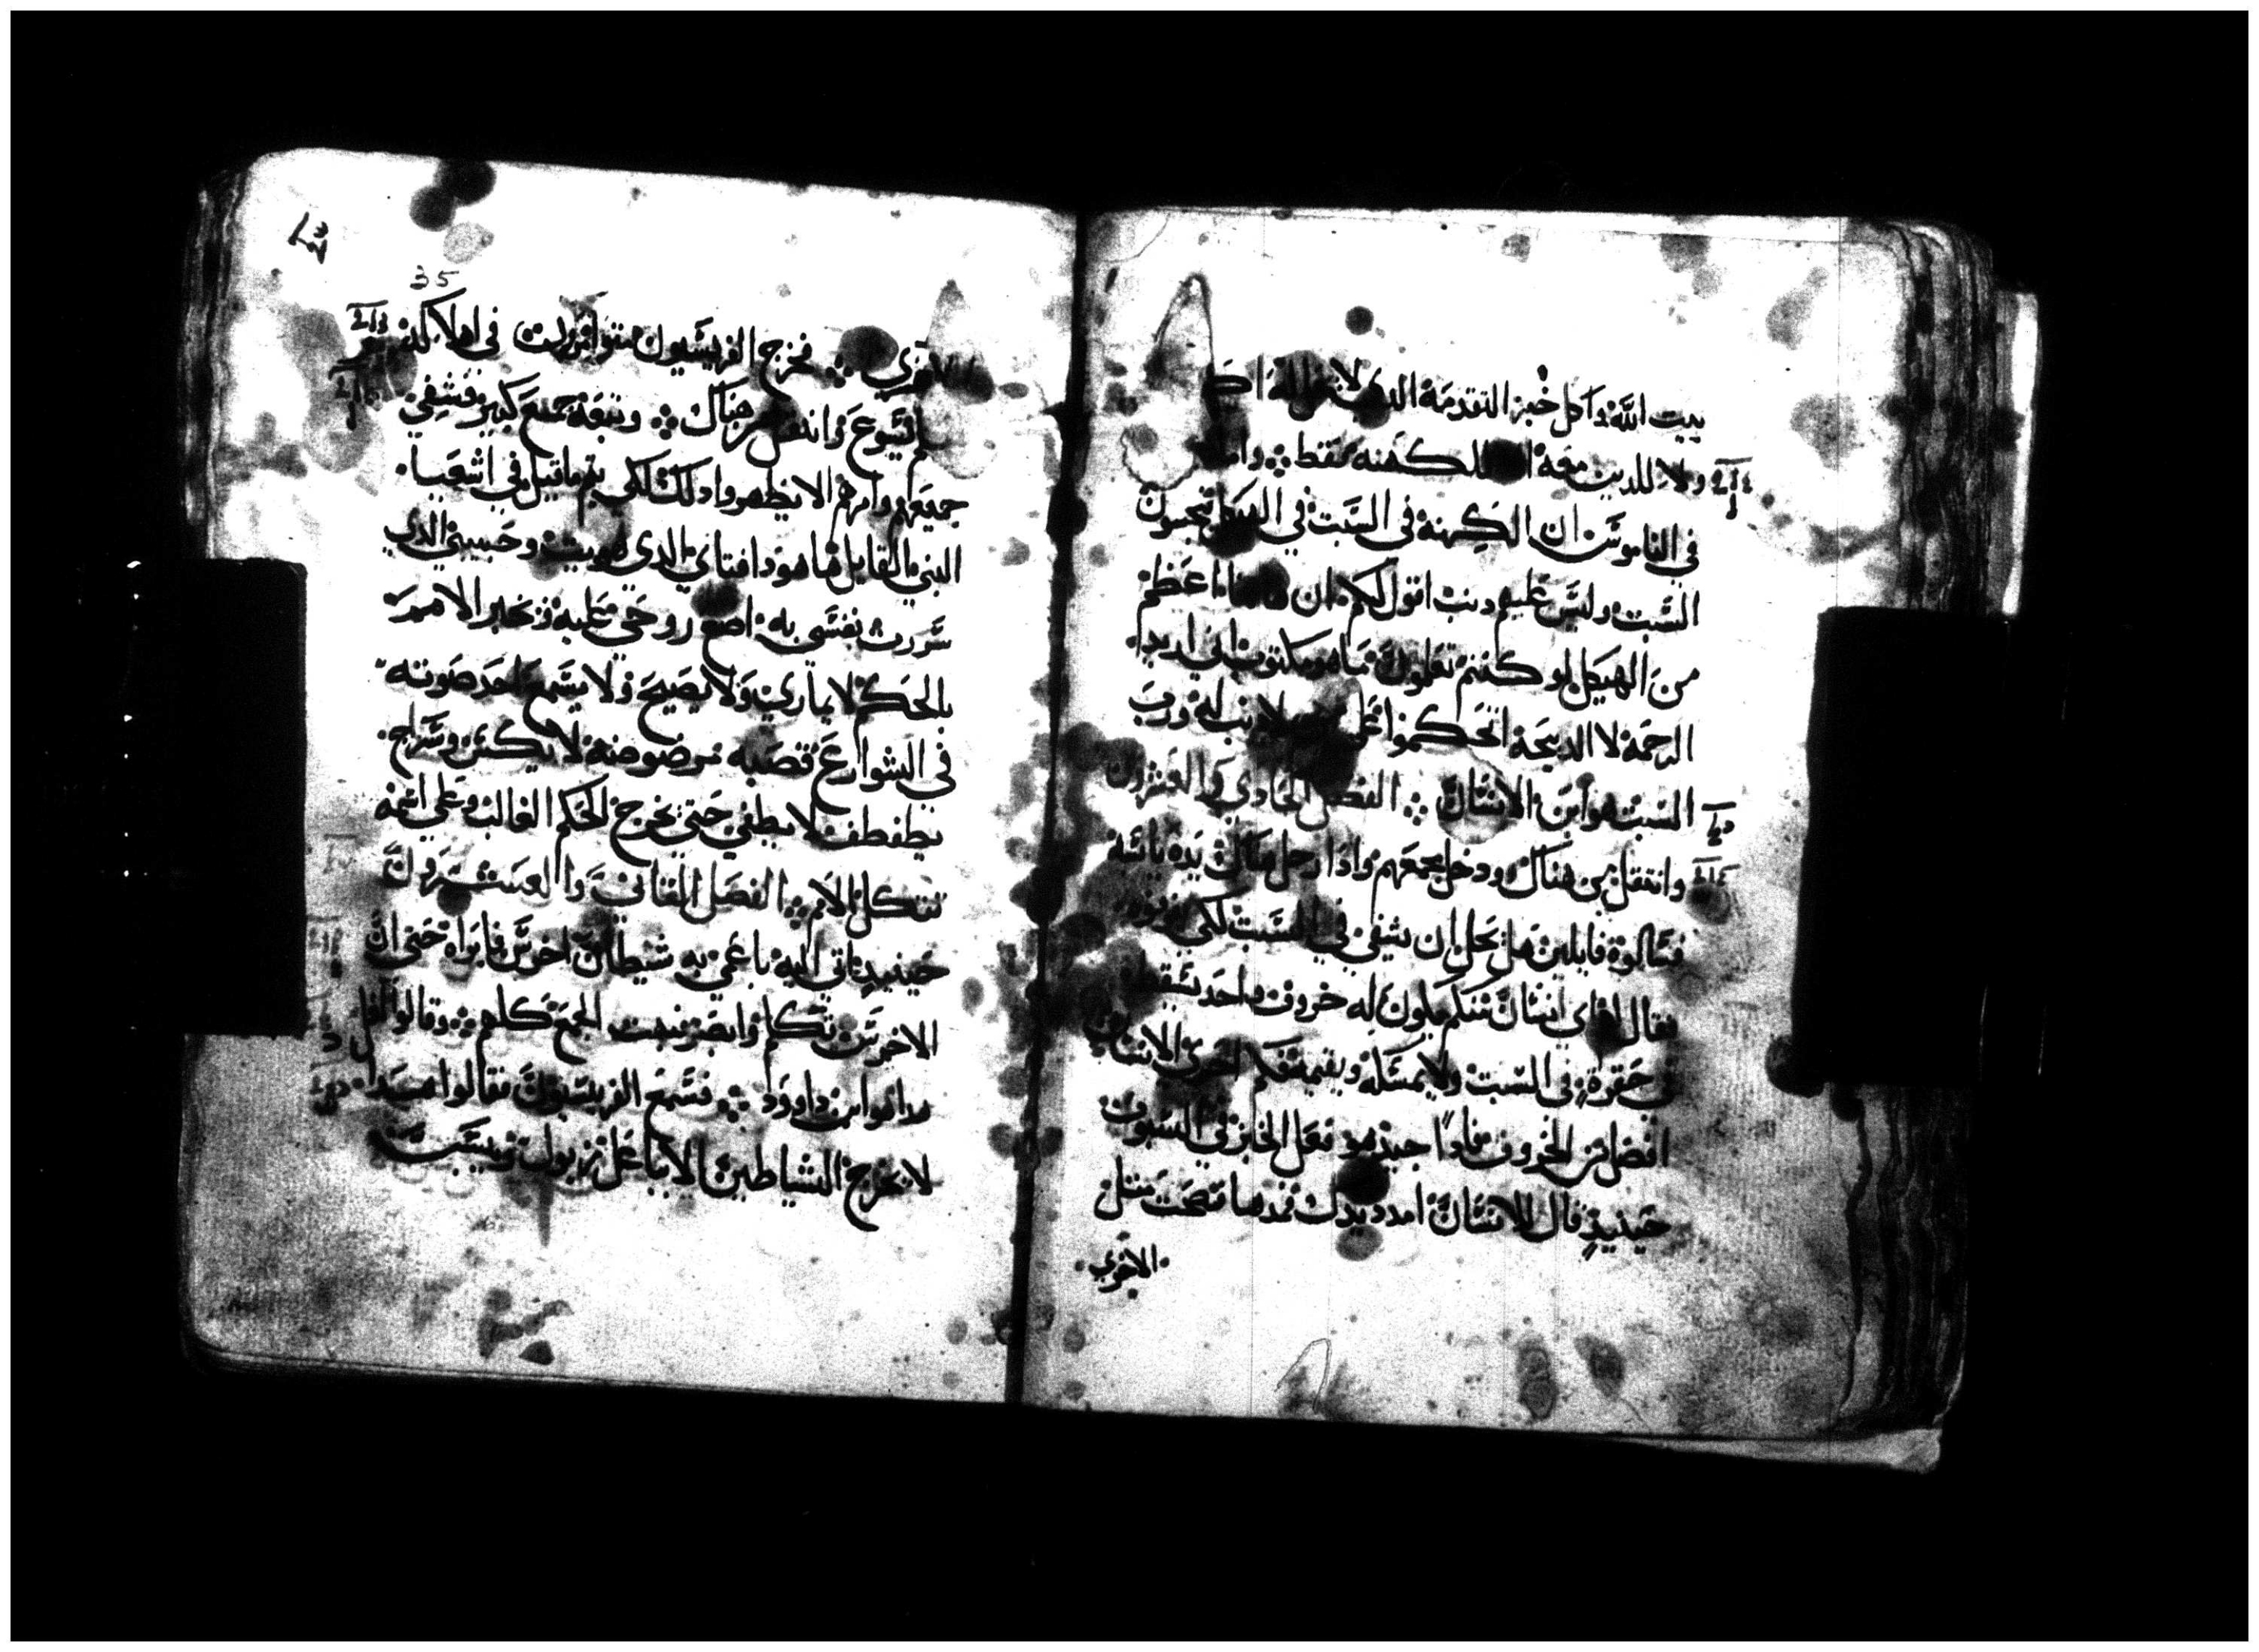 بيت الله واكل خبز التقدمة الذي لا يحل له اكله
ولا للدين معه للكهنه فقط واما
في الناموس ان الكهنة في السبت في الهيكل ينجسون
السبت وليس عليهم دنب اقول لكم ان هاهنا اعظم
من الهيكل لو كنتم تعلمون ما هو مكتوب اني اريد
الرحمة لا الدبيحة لتحكموا علي لا دنب له ورب
السبت هو ابن الانسان الفصل الحادي والعشرون
وانتقل من هناك ودخل مجمعهم وادا رجل هناك يده يابسه
فسالوه قايلين هل يحل ان يشفي في السبت لكي
فقال اي انسان منكم يكون له خروف واحد يسقط
في حفرة في السبت ولا يمسكه ويقيمه فكم احري الانسان
افضل من الخروف فادا جيد هو فعل الخير في السبوت
حينيد قال للانسان امدد يدك فمدها فصحت مثل
الاخري
35
الاخري فخرج الفريسيون متوامرين في اهلاكه
فعلم يسوع وانتقل من هناك وتبعه جمع كبير فشفي
جميعهم وامرهم الا يظهروا دلك لكي يتم ما قيل في اشعيا
النبي القايل ها هودا فتاي الدي هويت وحبيبي الدي
سررت نفسي به اضع روحي عليه فيخبر الامم
بالحكم لا يماري ولا يصيح ولا يسمع احد صوته
في الشوارع قصبه مرضوضة لا يكسر وسراج
يطفطف لا يطفي حتي يخرج الحكم الغالب وعلي اسمه
تتكل الامم الفصل الثاني والعشرون
حينيد اتي اليه باعمي به شيطان اخرس فابراه حتي ان
الاخرس تكلم وابصر فبهت الجمع كلهم وقالوا لعل
هدا هو ابن داوود فسمع الفريسيون فقالوا هدا
لا يخرج الشياطين الا بباعل زبول